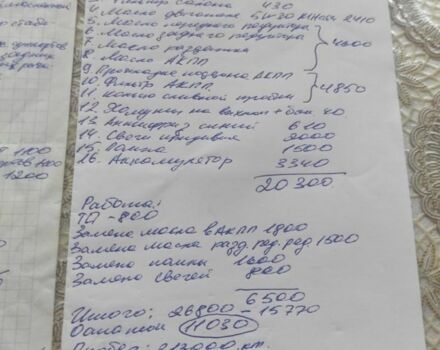 салона 430
4. Масло двигателя 5W30 2410
5. Масло переднего редуктора
6. Масло заднего редуктора
7. Масло раздатки
4600
8. Масло АКПП
9. Прокладка поддона АКПП
10. Фильтр АКПП.
4850
11. Кольцо сливной пробки
12. Хомуты на выхлоп + бол. 40.
13. Антифриз синий 610
14. Свечи иридиев 2000
15. Помпа 1500
26. Аккомулятор 3340
20 300
Работа:
ТО - 800
Замена масла в АКПП 1800
Замена масла разд. ред. ред 1500
Замена помпы 1600
Замена свечей 800
6500
Итого: 26800 - 15770
11030
1100
1200